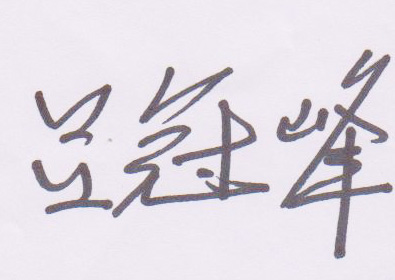 吕冠峰